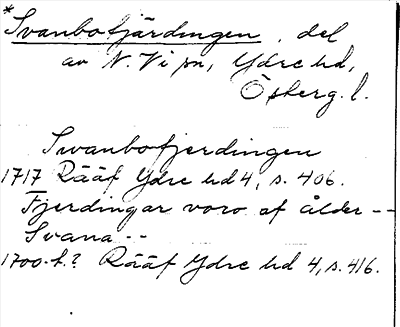 *Svanbofjärdingen, del
av N. Vi sn, Ydre hd,
Österg. l.
Swanbofjerdingen
1717 Rääf Ydre hd 4, s. 406.
Fjerdingar voro af ålder --
Svana --
1700-t.? Rääf Ydre hd 4, s. 416.